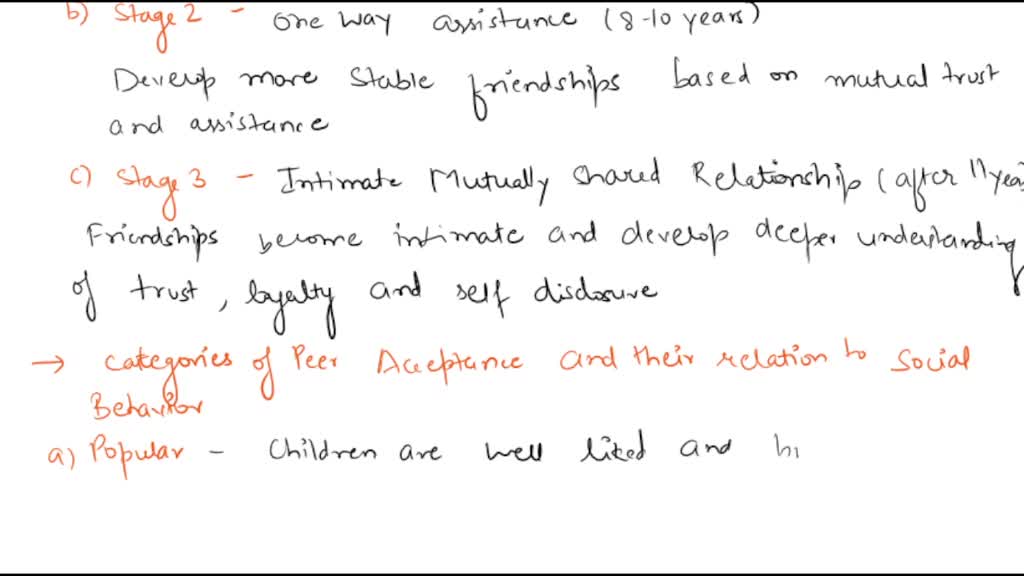 b) Stage 2 - One way assistance (8-10 years)
Develop more stable friendships based on mutual trust
and assistance
c) Stage 3 - Intimate Mutually Shared Relationship (after 11 yea
Friendships become intimate and develop deeper understanding
of trust, loyalty and self disclosure
→ Categories of Peer Acceptance and their relation to Social
Behavior
a) Popular - Children are well liked and